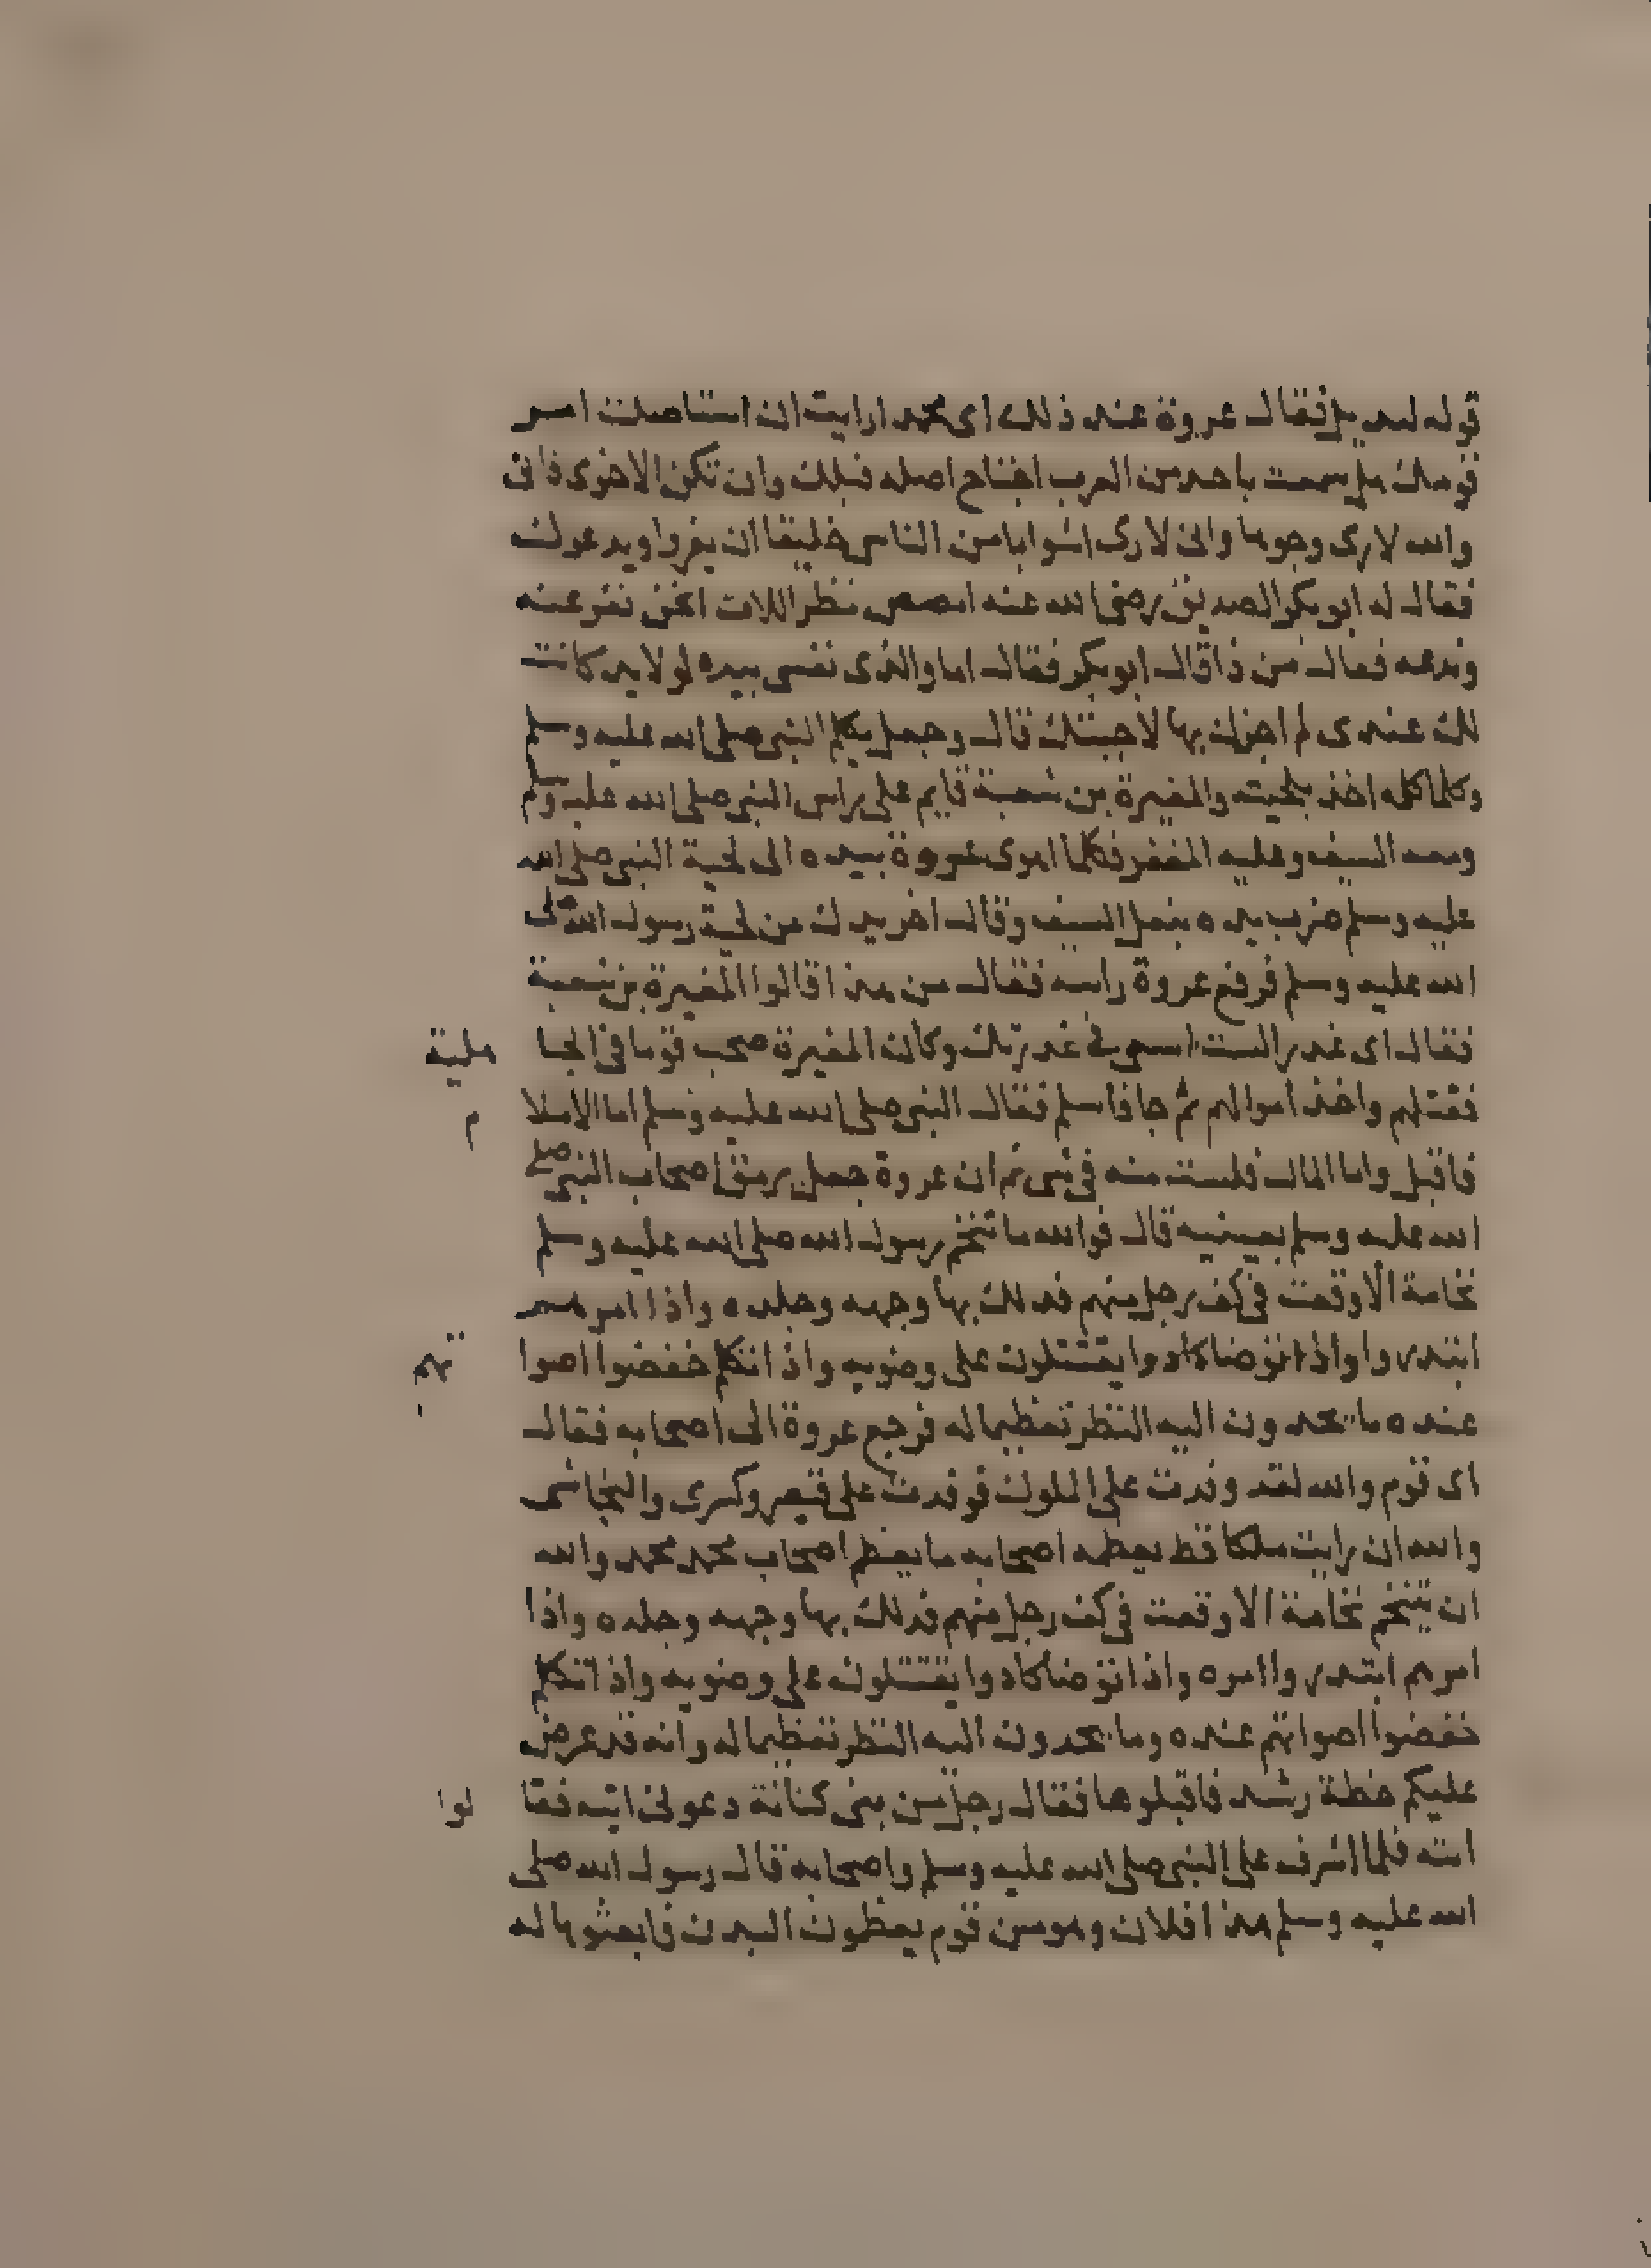 قوله لبديل فقال عروة عند ذلك اى محمد ارايت ان استاصلت امر
قومك هل سمعت باحد من العرب اجتاح اصله قبلك وان تكن الاخرى فانى
والله لارى وجوها وانى لارى اشوابا من الناس خليقا ان يفروا ويدعوك
فقال له ابو بكر الصديق رضى الله عنه امصص بظر اللات انحن نفر عنه
وندعه فقال من ذا قال ابو بكر فقال اما والذى نفسى بيده لولا يد كانت
لك عندى لم اجزك بها لاجبتك قال وجعل يكلم النبى صلى الله عليه وسلم
وكلما كلمه اخذ بلحيته والمغيرة بن شعبة قايم على راس النبى صلى الله عليه وسلم
ومعه السيف وعليه المغفر فكلما اهوى عروة بيده الى لحية النبى صلى الله
عليه وسلم ضرب يده بنعل السيف وقال اخر يدك من لحية رسول الله صلى
الله عليه وسلم فرفع عروة راسه فقال من هذا قالوا المغيرة بن شعبة
فقال اى غدر الست اسعى فى غدرتك وكان المغيرة صحب قوما فى الجا هلية
فقتلهم واخذ اموالهم ثم جا فاسلم فقال النبى صلى الله عليه وسلم اما الاسلا م
فاقبل واما المال فلست منه فى شى ثم ان عروة جعل يرمق اصحاب النبى صلى
الله عليه وسلم بعينيه قال فوالله ما تنخم رسول الله صلى الله عليه وسلم
نخامة الا وقعت فى كف رجل منهم فدلك بها وجهه وجلده واذا امرهم
ابتدروا واذا توضا كادوا يقتتلون على وضويه واذا تكلم خفضوا اصوا تهم
عنده ما يحدون اليه النظر تعظيما له فرجع عروة الى اصحابه فقال
اى قوم والله لقد وفدت على الملوك فوفدت على قيصر وكسرى والنجاشى
والله ان رايت ملكا قط يعظمه اصحابه ما يعظم اصحاب محمد محمد والله
ان يتنخم نخامة الا وقعت فى كف رجل منهم فدلك بها وجهه وجلده واذا
امرهم ابتدروا امره واذا توضا كادوا يقتتلون على وضويه واذا تكلم
خفضوا اصواتهم عنده وما يحدون اليه النظر تعظيما له وانه قد عرض
عليكم خطة رشد فاقبلوها فقال رجل من بنى كنانة دعونى اتيه فقا لوا
اتته فلما اشرف على النبى صلى الله عليه وسلم واصحابه قال رسول الله صلى
الله عليه وسلم هذا فلان وهو من قوم يعظون البدن فابعثوها له